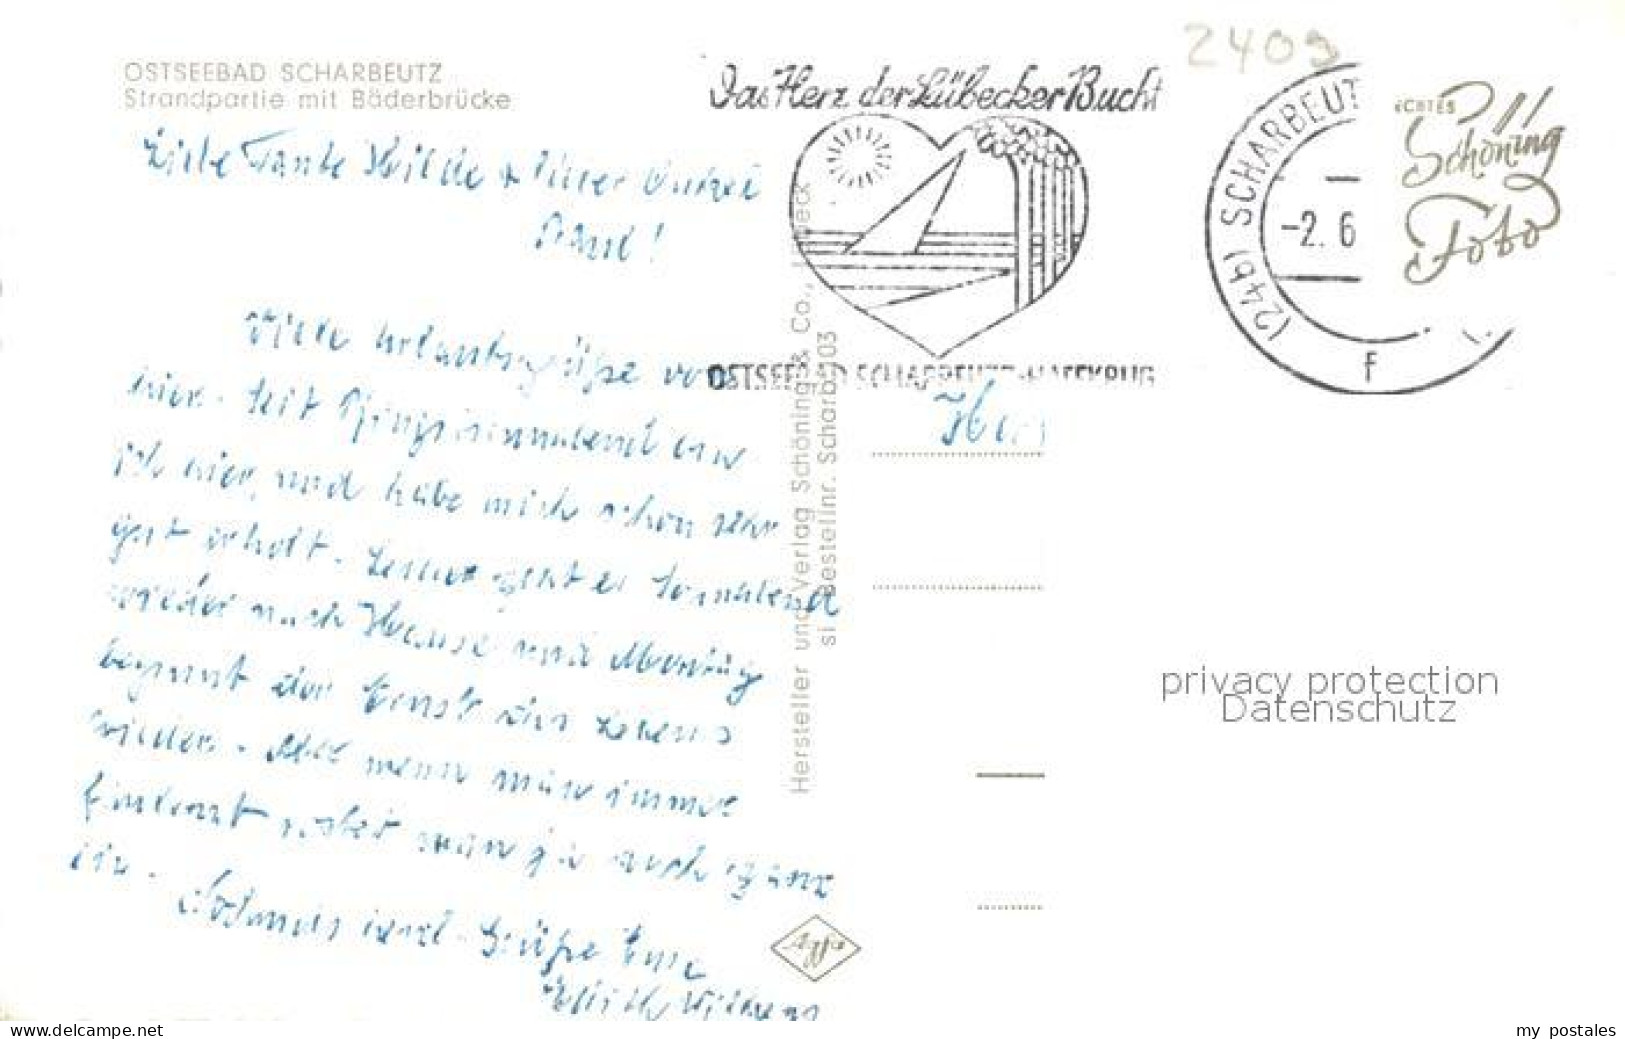 2409
OSTSEEBAD SCHARBEUTZ
Strandpartie mit Bäderbrücke
Das Herz der Lübecker Bucht
OSTSEEBAD SCHARBEUTZ-HAFFKRUG
(24b) SCHARBEUT
-2. 6
f
ECHTES
Schöning
Foto
Liebe Tante Hilde + lieber Onkel
Viele Urlaubsgrüße von
hier. Seit Pfingstsonnabend bin
ich hier, und habe mich schon sehr
gut erholt. Leider geht es Sonnabend
wieder nach Hause und Montag
beginnt der Ernst des Lebens
wieder. Aber wenn man immer
man ja auch ganz
ein.
herzl. Grüße Eure
Her
Hersteller und Verlag Schöning & Co., Lübeck
si Bestellnr. Scharb. 103
Agfa
privacy protection
Datenschutz
www.delcampe.net
my postales